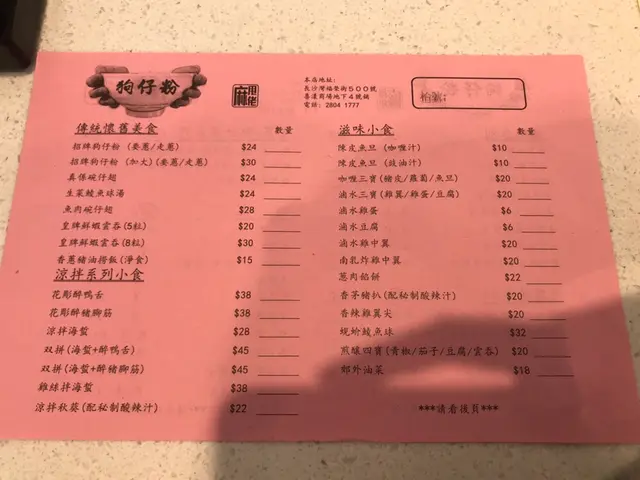 狗仔粉
麻甩佬
本店地址:
長沙灣福榮街500號
喜漢商場地下4號鋪
電話: 2804 1777
枱號:
傳統懷舊美食 數量
招牌狗仔粉 (要蔥/走蔥) $24
招牌狗仔粉 (加大)(要蔥/走蔥) $30
真係碗仔翅 $24
生菜鯪魚球湯 $24
魚肉碗仔翅 $28
皇牌鮮蝦雲吞(5粒) $20
皇牌鮮蝦雲吞(8粒) $30
香蔥豬油撈飯(淨食) $15
涼拌系列小食
花彫醉鴨舌 $38
花彫醉豬腳筋 $38
涼拌海蜇 $28
双拼(海蜇+醉鴨舌) $45
双拼(海蜇+醉豬腳筋) $45
雞絲拌海蜇 $38
涼拌秋葵(配秘制酸辣汁) $22
滋味小食 數量
陳皮魚旦 (咖喱汁) $10
陳皮魚旦 (豉油汁) $10
咖喱三寶(豬皮/蘿蔔/魚旦) $20
滷水三寶(雞翼/雞蛋/豆腐) $20
滷水雞蛋 $6
滷水豆腐 $6
滷水雞中翼 $20
南乳炸雞中翼 $20
蔥肉餡餅 $22
香茅豬扒(配秘制酸辣汁) $20
香辣雞翼尖 $20
蜆蚧鯪魚球 $32
煎釀四寶(青椒/茄子/豆腐/雲吞) $20
郊外油菜 $18
***請看後頁***